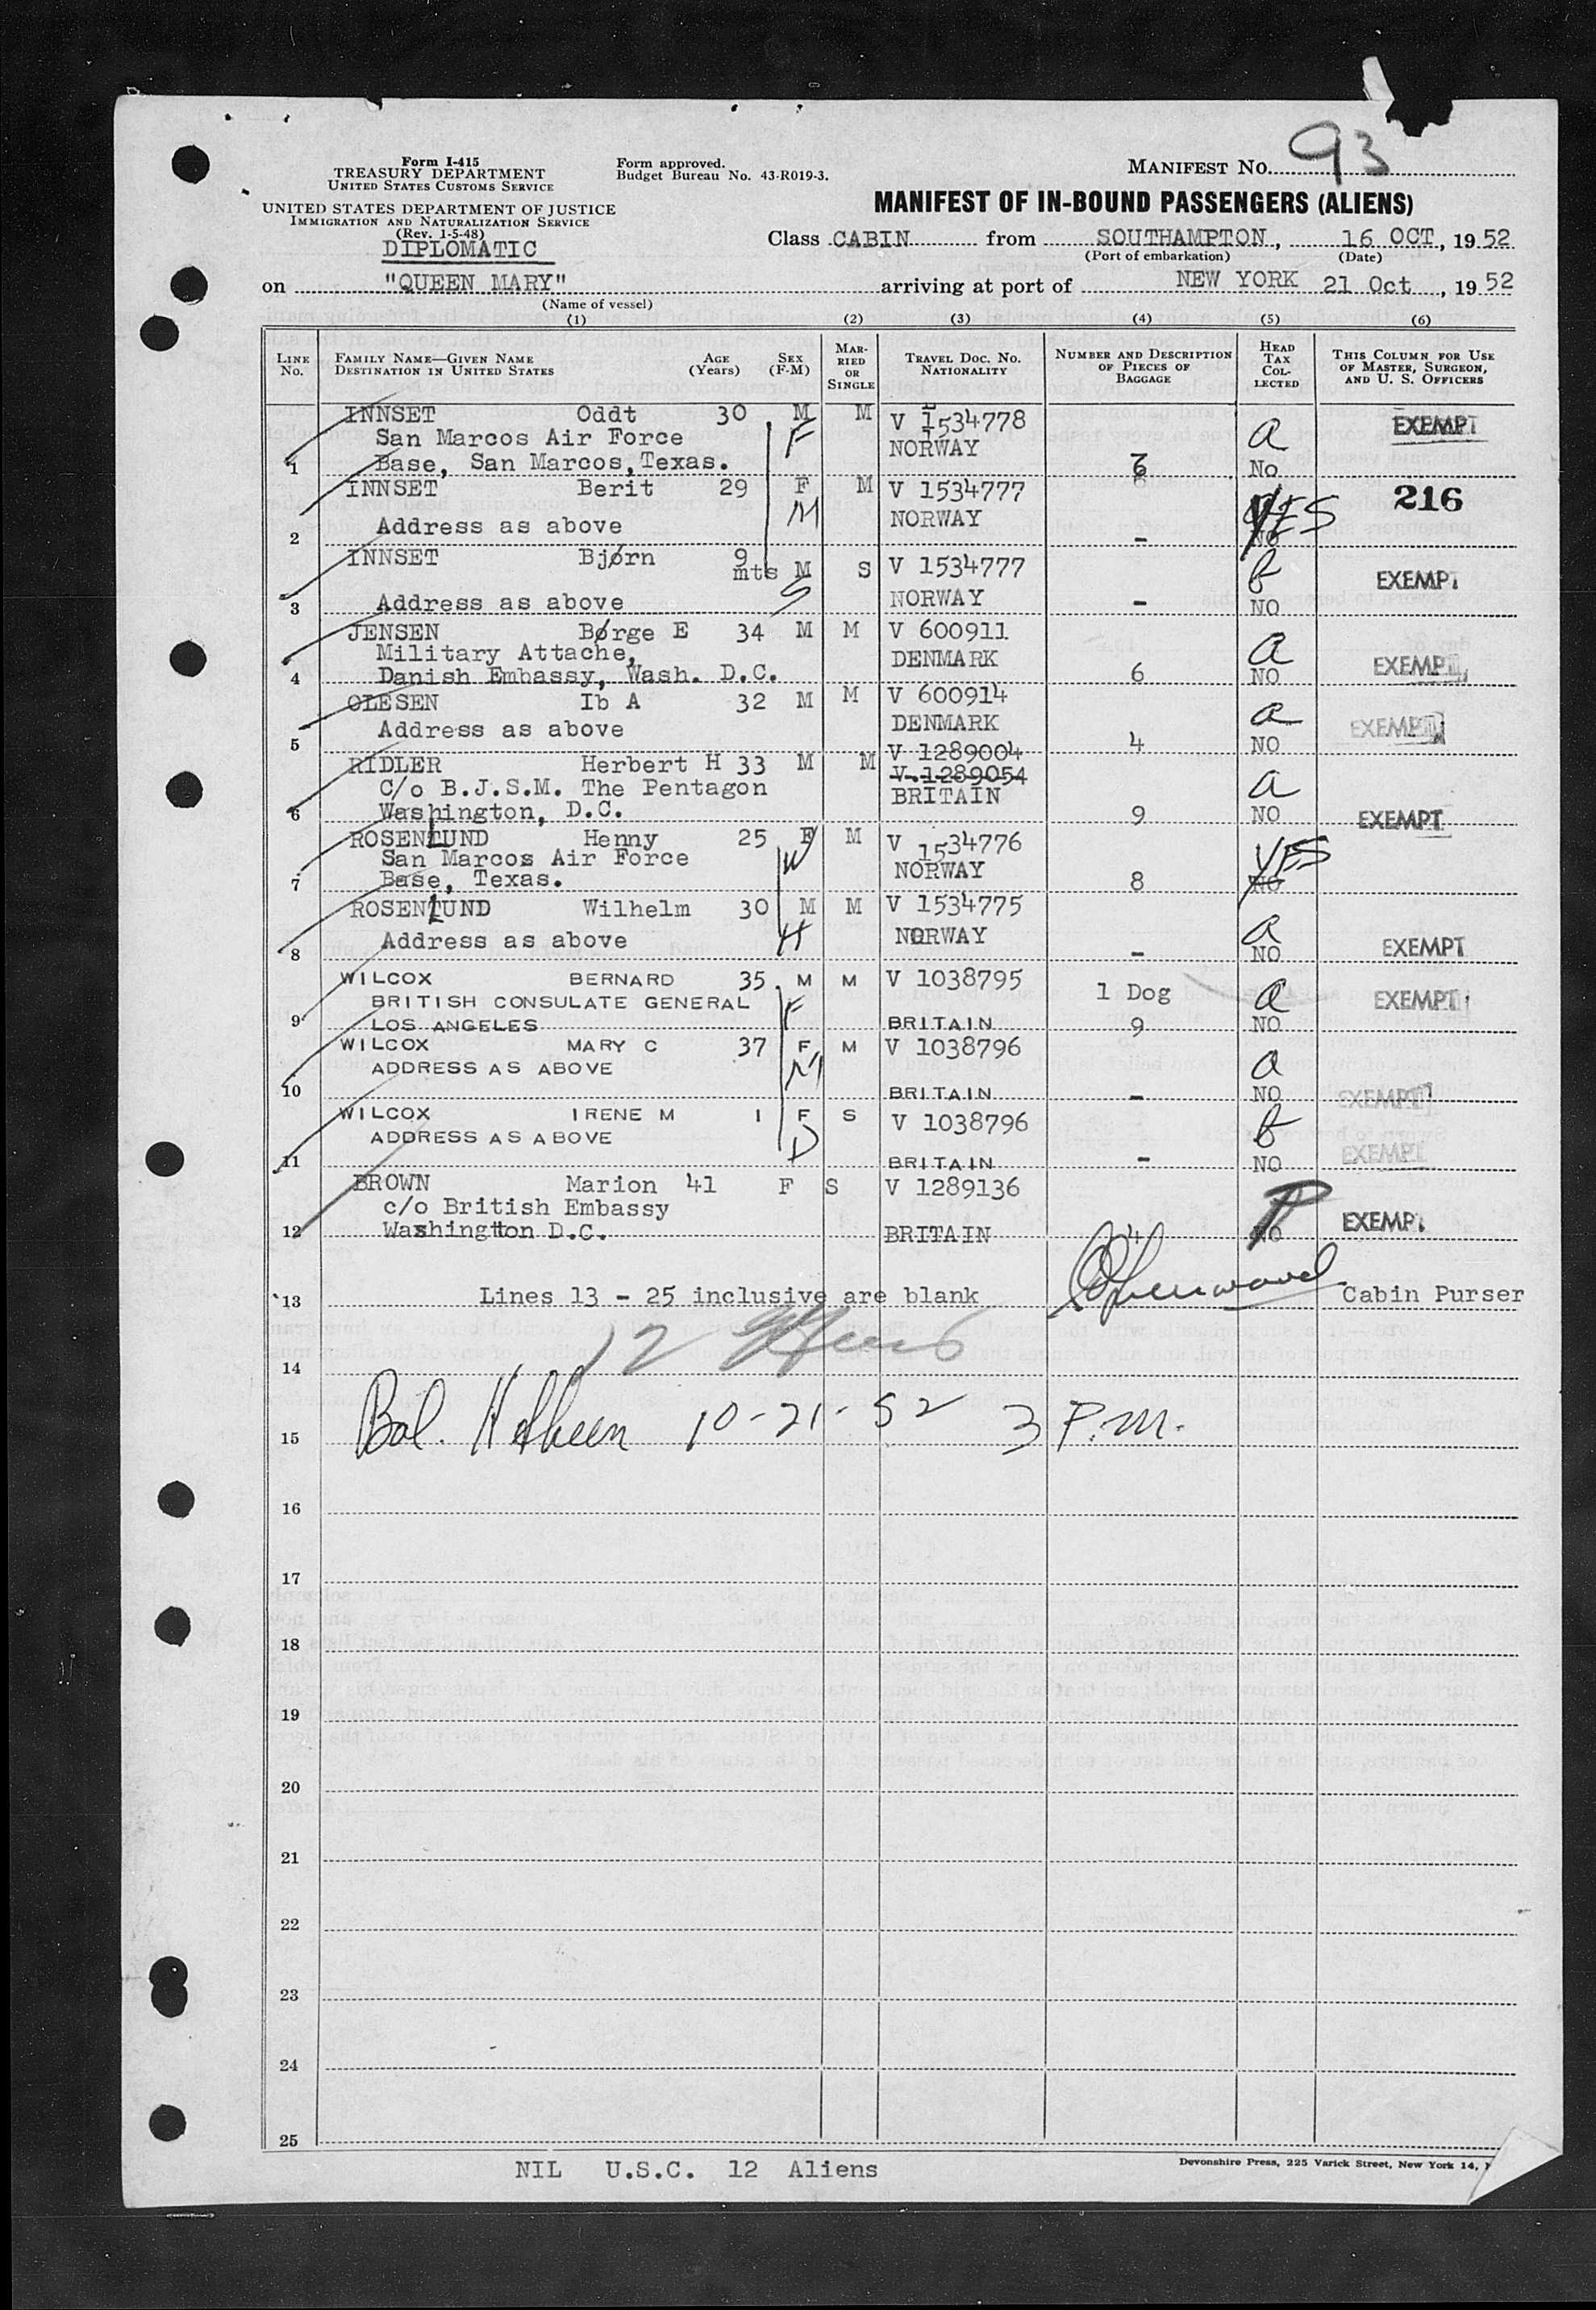 Form I-415
TREASURY DEPARTMENT
UNITED STATES CUSTOMS SERVICE
UNITED STATES DEPARTMENT OF JUSTICE
IMMIGRATION AND NATURALIZATION SERVICE
(Rev. 1-5-48)
DIPLOMATIC
Form approved.
Budget Bureau No. 43-R019-3.
MANIFEST NO. 93
MANIFEST OF IN-BOUND PASSENGERS (ALIENS)
Class CABIN from SOUTHAMPTON, 16 OCT, 1952
(Port of embarkation) (Date)
on "QUEEN MARY" arriving at port of NEW YORK 21 Oct, 1952
(Name of vessel)
(1) (2) (3) (4) (5) (6)
LINE NO. FAMILY NAME—GIVEN NAME DESTINATION IN UNITED STATES AGE (Years) SEX (F-M) MARRIED OR SINGLE TRAVEL DOC. NO. NATIONALITY NUMBER AND DESCRIPTION OF PIECES OF BAGGAGE HEAD TAX COLLECTED THIS COLUMN FOR USE OF MASTER, SURGEON, AND U. S. OFFICERS
INNSET Oddt 30 M M V 1534778 EXEMPT
San Marcos Air Force F NORWAY a
1 Base, San Marcos, Texas. No
INNSET Berit 29 F M V 1534777 216
M NORWAY YES
2 Address as above - NO
INNSET Bjørn 9 mts M S V 1534777 b EXEMPT
3 Address as above S NORWAY - NO
JENSEN Børge E 34 M M V 600911 a
Military Attache, DENMARK EXEMPT
4 Danish Embassy, Wash. D.C. 6 NO
OLESEN Ib A 32 M M V 600914 a
Address as above DENMARK EXEMPT
5 4 NO
RIDLER Herbert H 33 M M V 1289004
V 1289054
C/o B.J.S.M. The Pentagon BRITAIN a
6 Washington, D.C. 9 NO EXEMPT
ROSENLUND Henny 25 F M V 1534776
San Marcos Air Force W NORWAY YES
7 Base, Texas. 8 NO
ROSENLUND Wilhelm 30 M M V 1534775
8 Address as above H NORWAY - a NO EXEMPT
WILCOX BERNARD 35 M M V 1038795 1 Dog
BRITISH CONSULATE GENERAL F a EXEMPT
9 LOS ANGELES BRITAIN 9 NO
WILCOX MARY C 37 F M V 1038796
ADDRESS AS ABOVE M a
10 BRITAIN - NO EXEMPT
WILCOX IRENE M 1 F S V 1038796
ADDRESS AS ABOVE D b
11 BRITAIN - NO EXEMPT
BROWN Marion 41 F S V 1289136
c/o British Embassy EXEMPT
12 Washington D.C. BRITAIN 4 NO
13 Lines 13 - 25 inclusive are blank Cabin Purser
12
14
15 10-21-52 3 P.M.
16
17
18
19
20
21
22
23
24
25
NIL U.S.C. 12 Aliens
Devonshire Press, 225 Varick Street, New York 14,